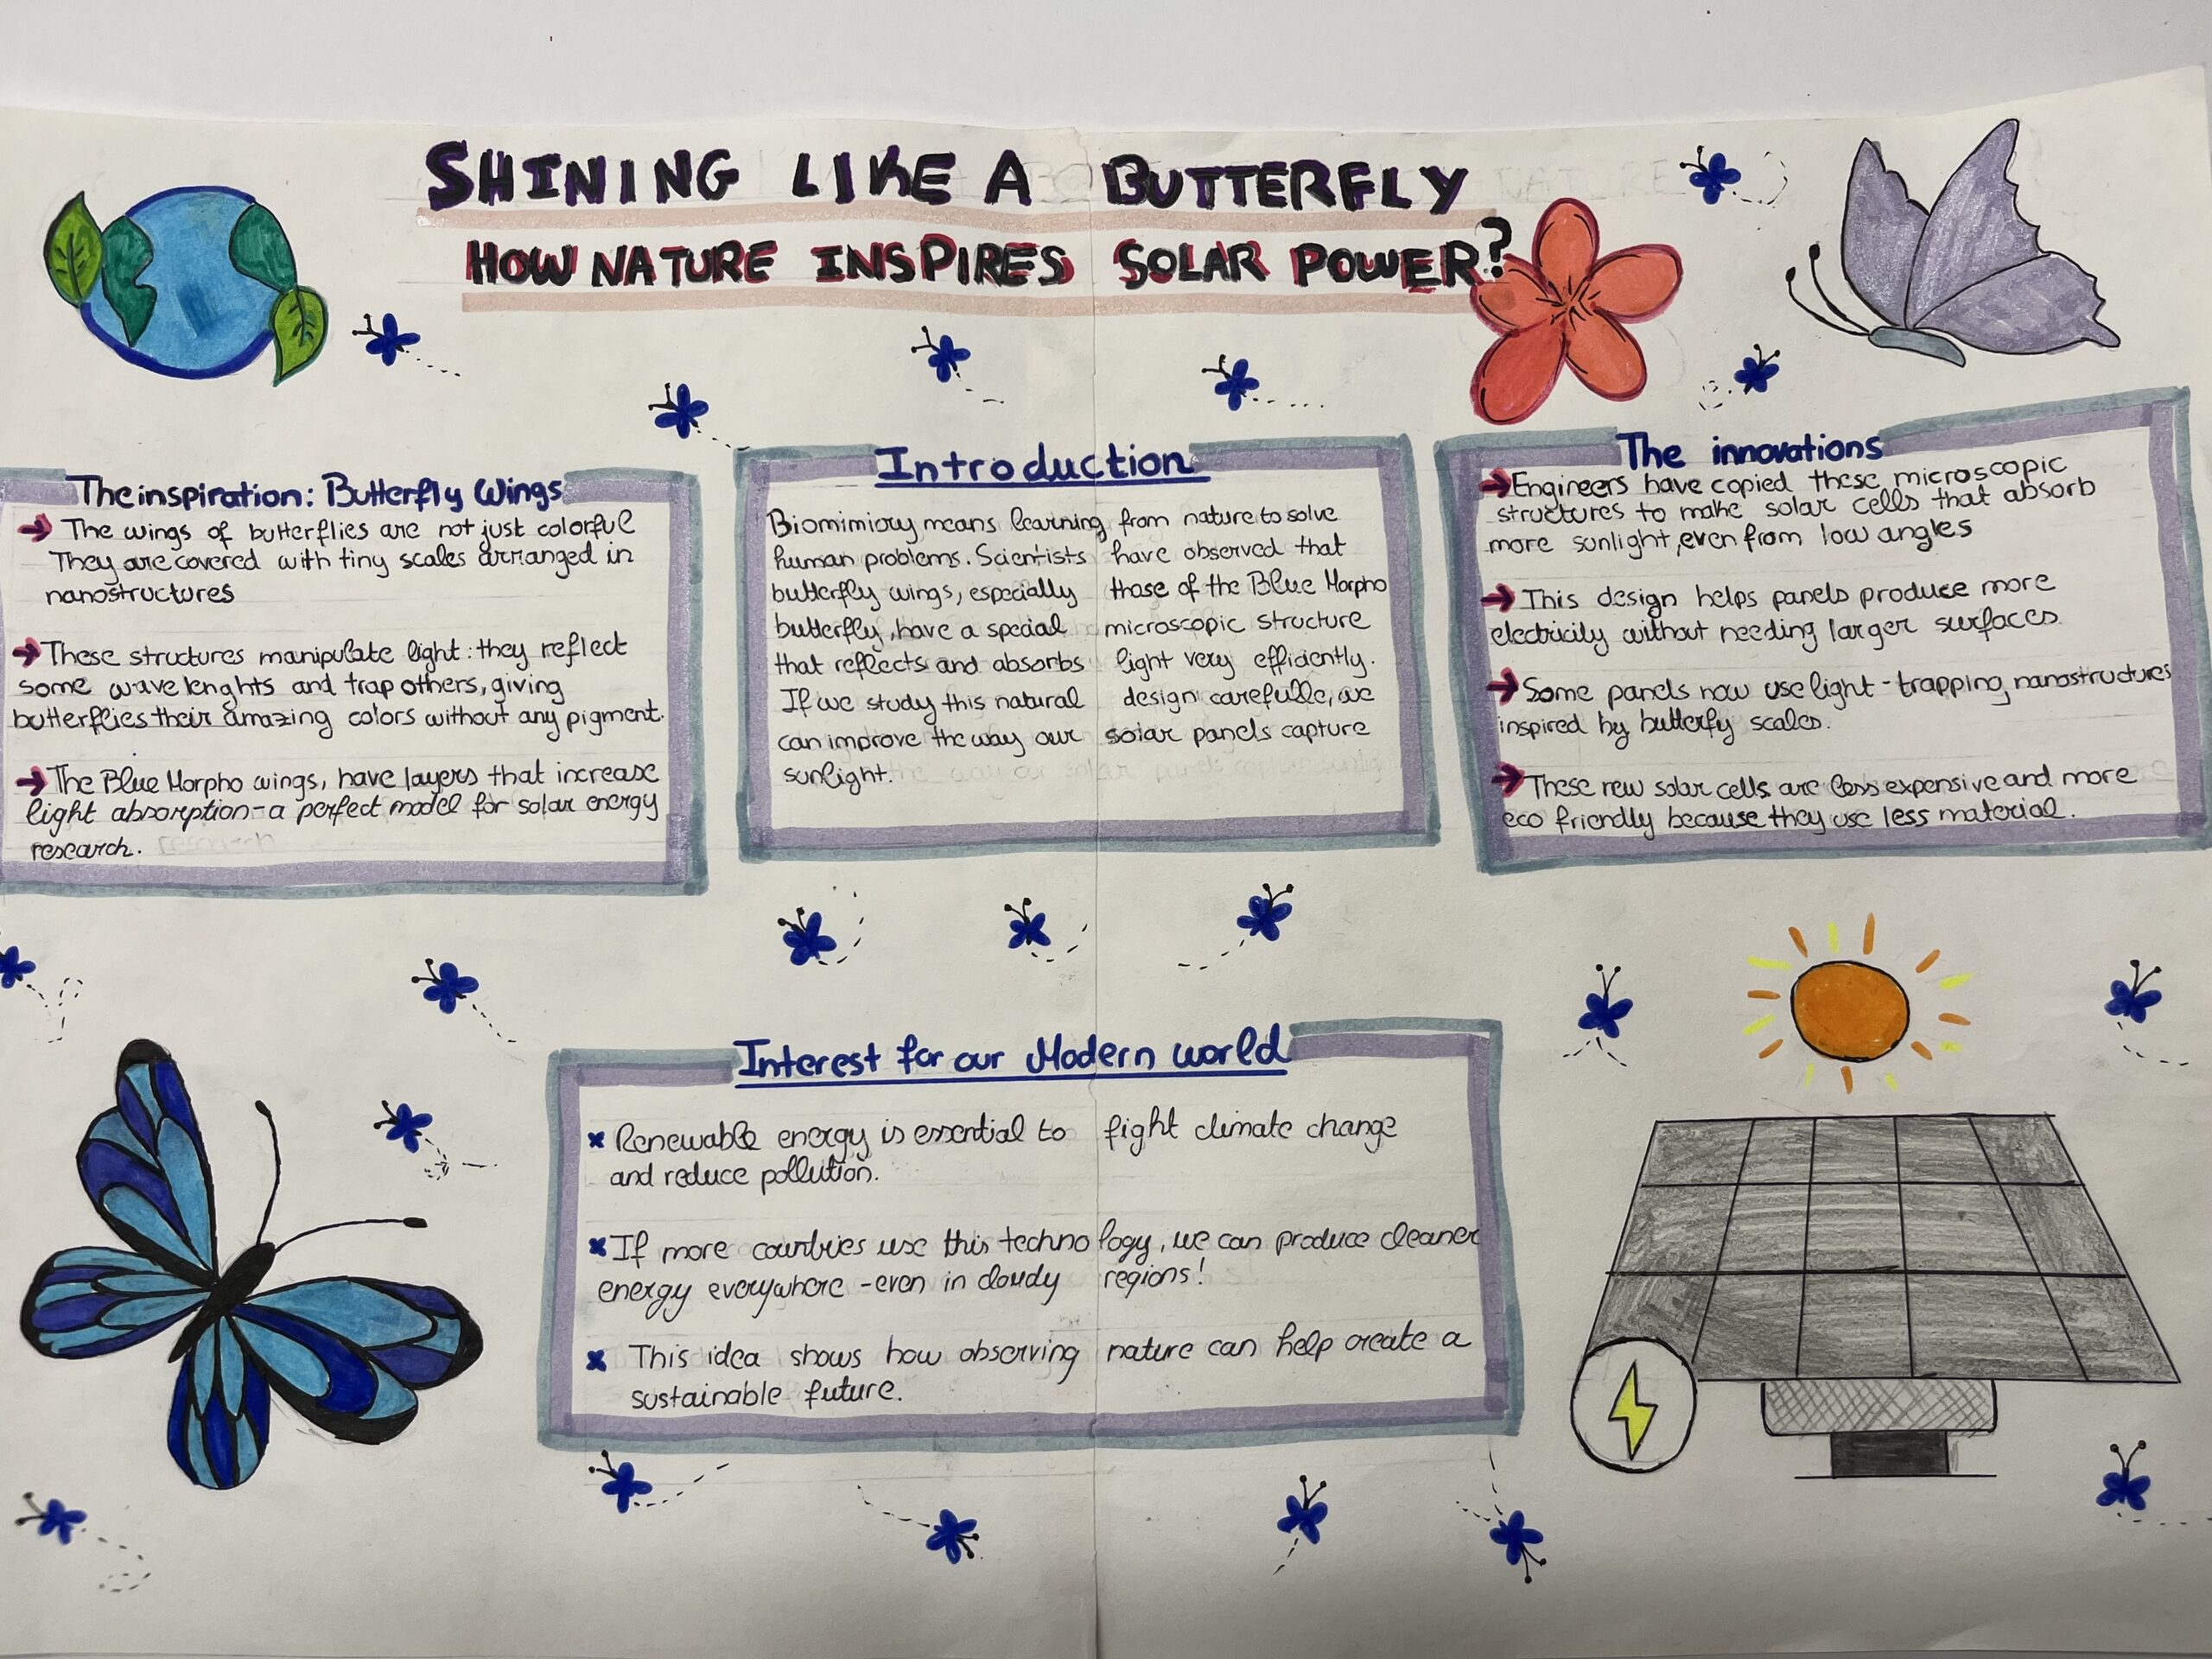 SHINING LIKE A BUTTERFLY
HOW NATURE INSPIRES SOLAR POWER?
The inspiration: Butterfly Wings
→ The wings of butterflies are not just colorful
They are covered with tiny scales arranged in
nanostructures
→ These structures manipulate light: they reflect
some wave lenghts and trap others, giving
butterflies their amazing colors without any pigment.
→ The Blue Morpho wings, have layers that increase
light absorption - a perfect model for solar energy
research.
Introduction
Biomimiory means learning from nature to solve
human problems. Scientists have observed that
butterfly wings, especially those of the Blue Morpho
butterfly, have a special microscopic structure
that reflects and absorbs light very efficiently.
If we study this natural design carefulle, we
can improve the way our solar panels capture
sunlight.
The innovations
→ Engineers have copied these microscopic
structures to make solar cells that absorb
more sunlight, even from low angles
→ This design helps panels produce more
electricity without needing larger surfaces.
→ Some panels now use light - trapping nanostructures
inspired by butterfy scales.
→ These new solar cells are less expensive and more
eco friendly because they use less material.
Interest for our Modern world
x Renewable energy is essential to fight climate change
and reduce pollution.
x If more countries use this technology, we can produce cleaner
energy everywhere - even in cloudy regions!
x This idea shows how observing nature can help create a
sustainable future.